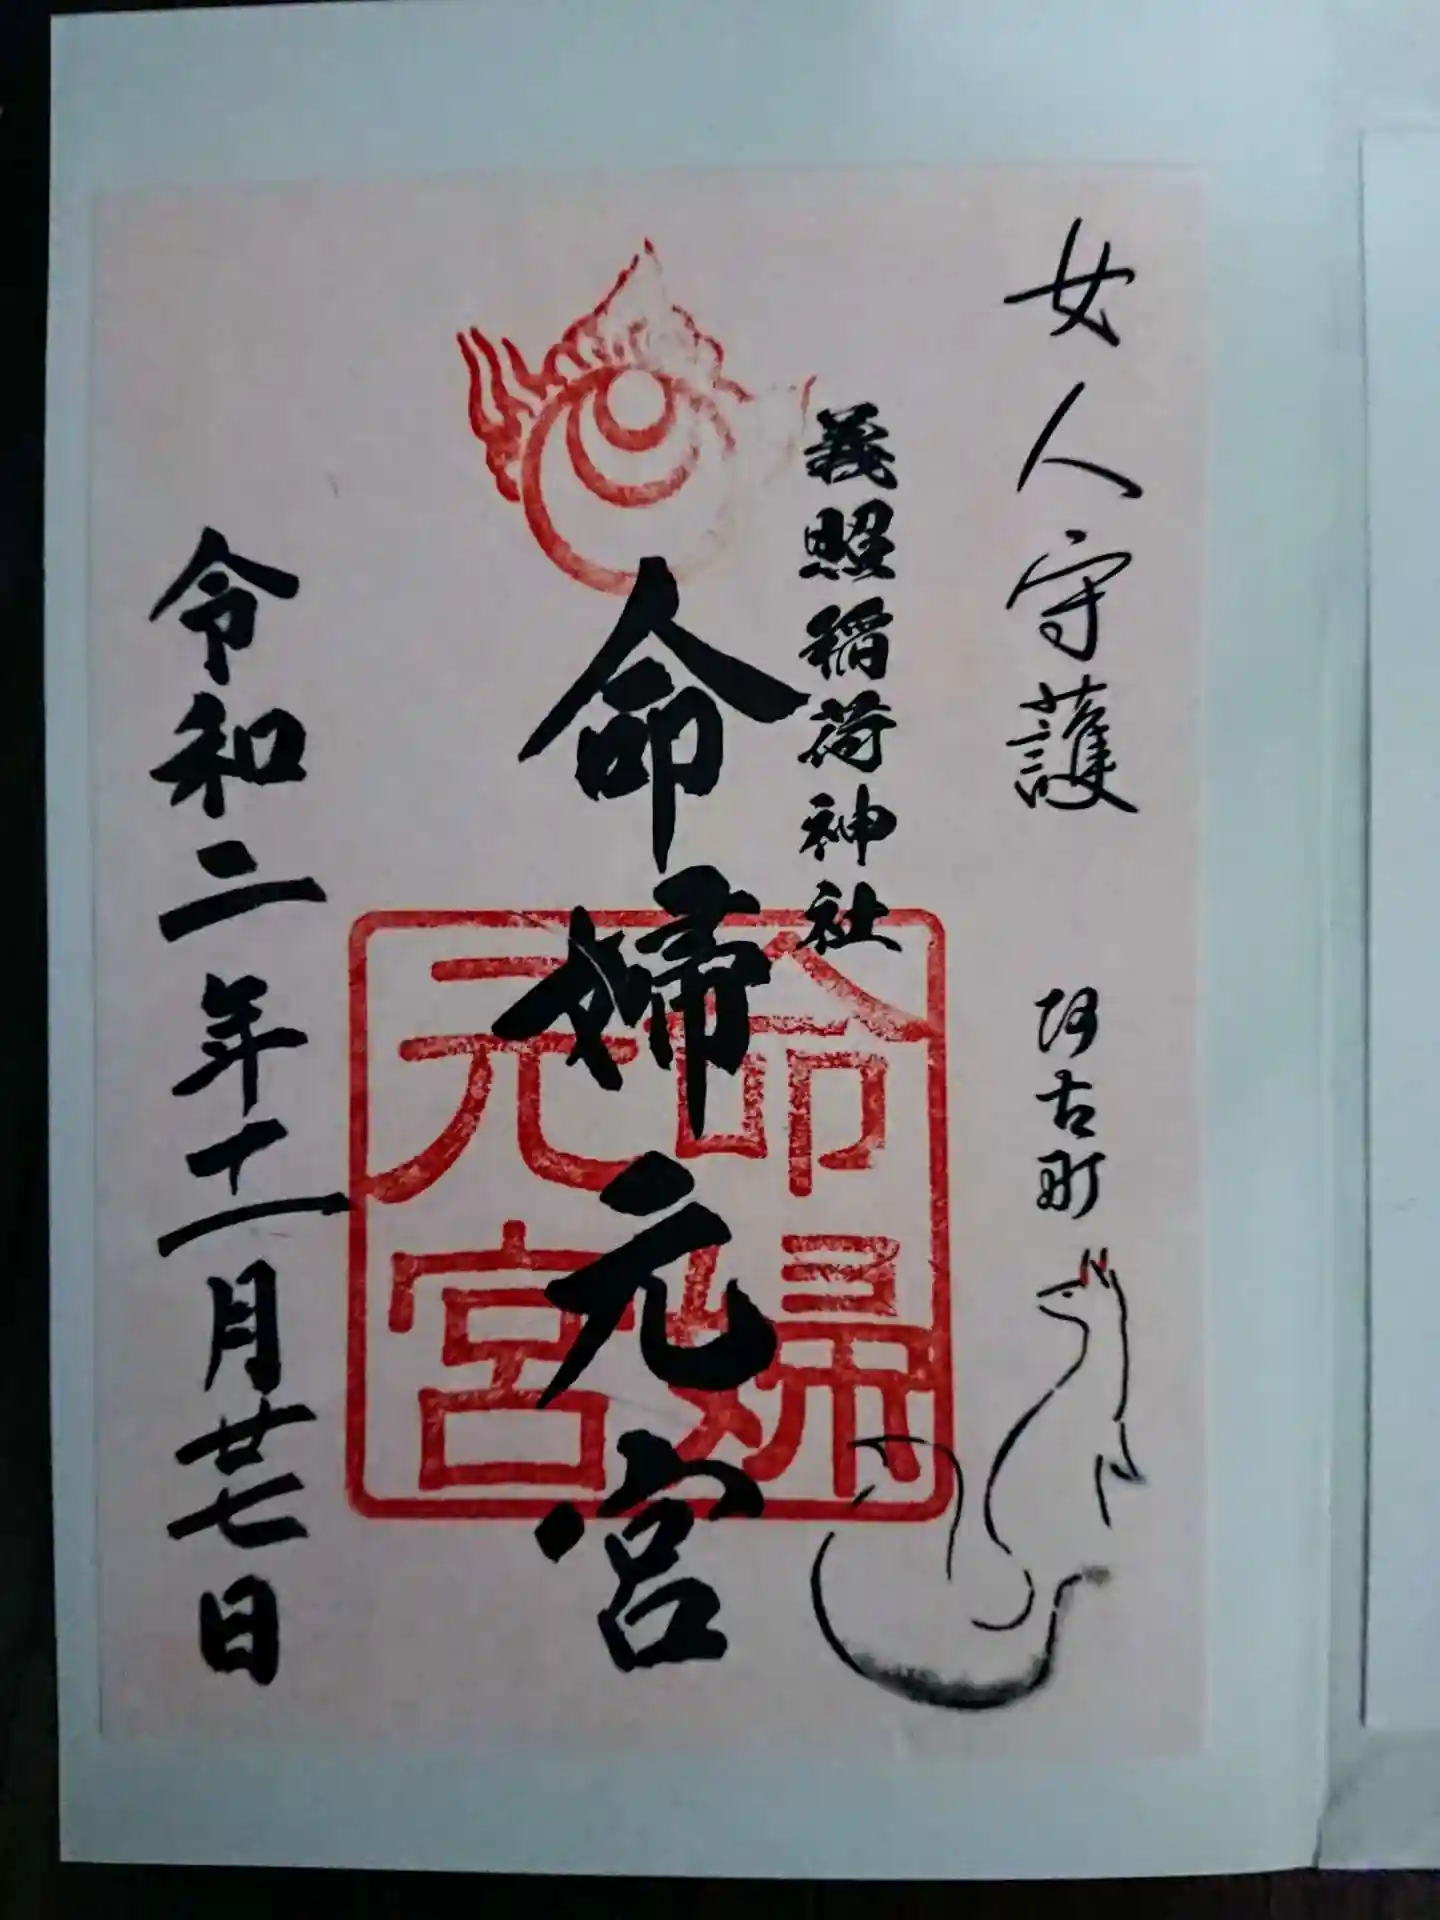 女人守護 阿古町
義照稲荷神社
命婦元宮
命婦元宮
令和二年十二月廿七日